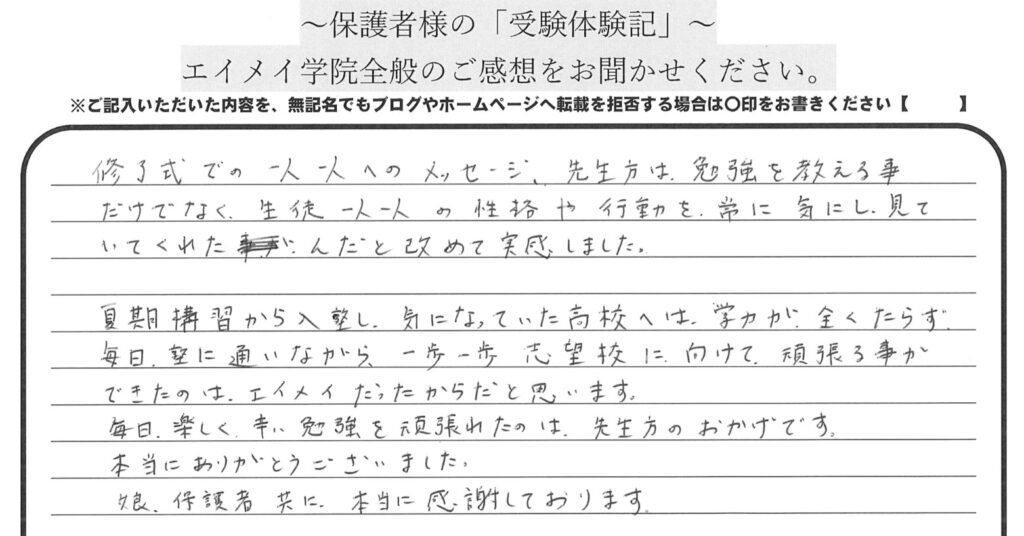 ～保護者様の「受験体験記」～
エイメイ学院全般のご感想をお聞かせください。
※ご記入いただいた内容を、無記名でもブログやホームページへ転載を拒否する場合は〇印をお書きください【　　　】
修了式での一人一人へのメッセージ、先生方は、勉強を教える事
だけでなく、生徒一人一人の性格や行動を、常に気にし、見て
いてくれたんだと改めて実感しました。
夏期構習から入塾し、気になっていた高校へは、学力が全くたらず
毎日、塾に通いながら、一歩一歩志望校に向けて、頑張る事が
できたのは、エイメイだったからだと思います。
毎日、楽しく、辛い勉強を頑張れたのは、先生方のおかげです。
本当にありがとうございました。
娘、保護者共に、本当に感謝しております。